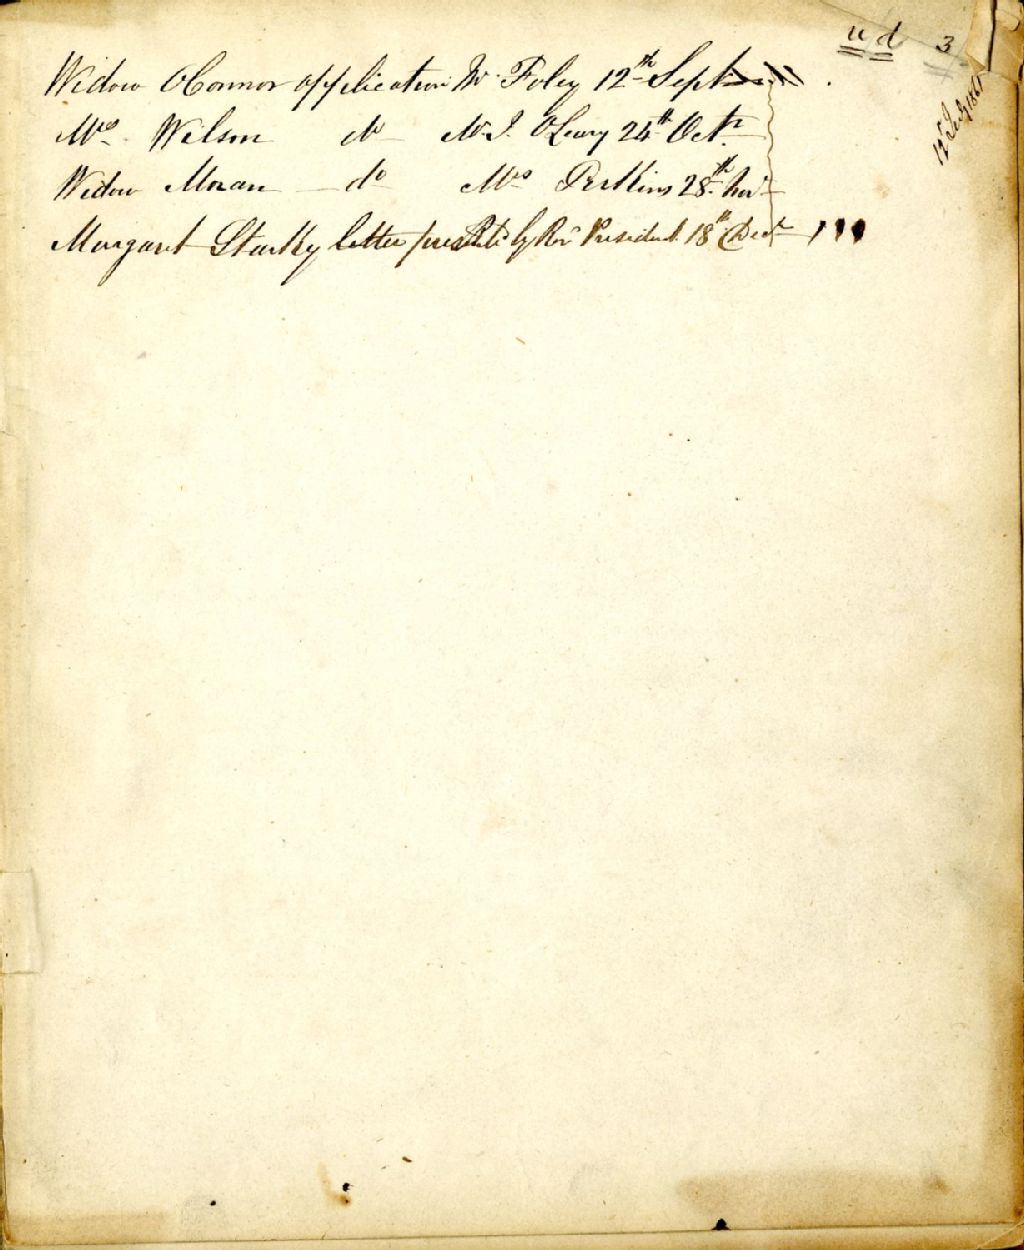 u d 3
12th July 1861
Widow OConnor application Mr Foley 12th Sept
Mrs Wilson do Mr J. OLeary 24th Octr
Widow Moran do Mrs Perkins 28th Novr
Margaret Starky letter by Revd President 18th Decr